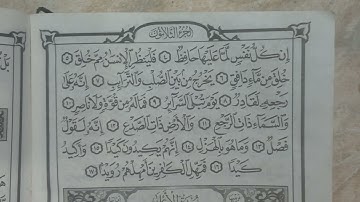 الجزء الثلاثون
إِن كُلُّ نَفْسٍ لَّمَّا عَلَيْهَا حَافِظٌ ٤ فَلْيَنظُرِ الْإِنسَانُ مِمَّ خُلِقَ ٥
خُلِقَ مِن مَّاءٍ دَافِقٍ ٦ يَخْرُجُ مِن بَيْنِ الصُّلْبِ وَالتَّرَائِبِ ٧ إِنَّهُ عَلَىٰ
رَجْعِهِ لَقَادِرٌ ٨ يَوْمَ تُبْلَى السَّرَائِرُ ٩ فَمَا لَهُ مِن قُوَّةٍ وَلَا نَاصِرٍ ١٠
وَالسَّمَاءِ ذَاتِ الرَّجْعِ ١١ وَالْأَرْضِ ذَاتِ الصَّدْعِ ١٢ إِنَّهُ لَقَوْلٌ
فَصْلٌ ١٣ وَمَا هُوَ بِالْهَزْلِ ١٤ إِنَّهُمْ يَكِيدُونَ كَيْدًا ١٥ وَأَكِيدُ
كَيْدًا ١٦ فَمَهِّلِ الْكَافِرِينَ أَمْهِلْهُمْ رُوَيْدًا ١٧